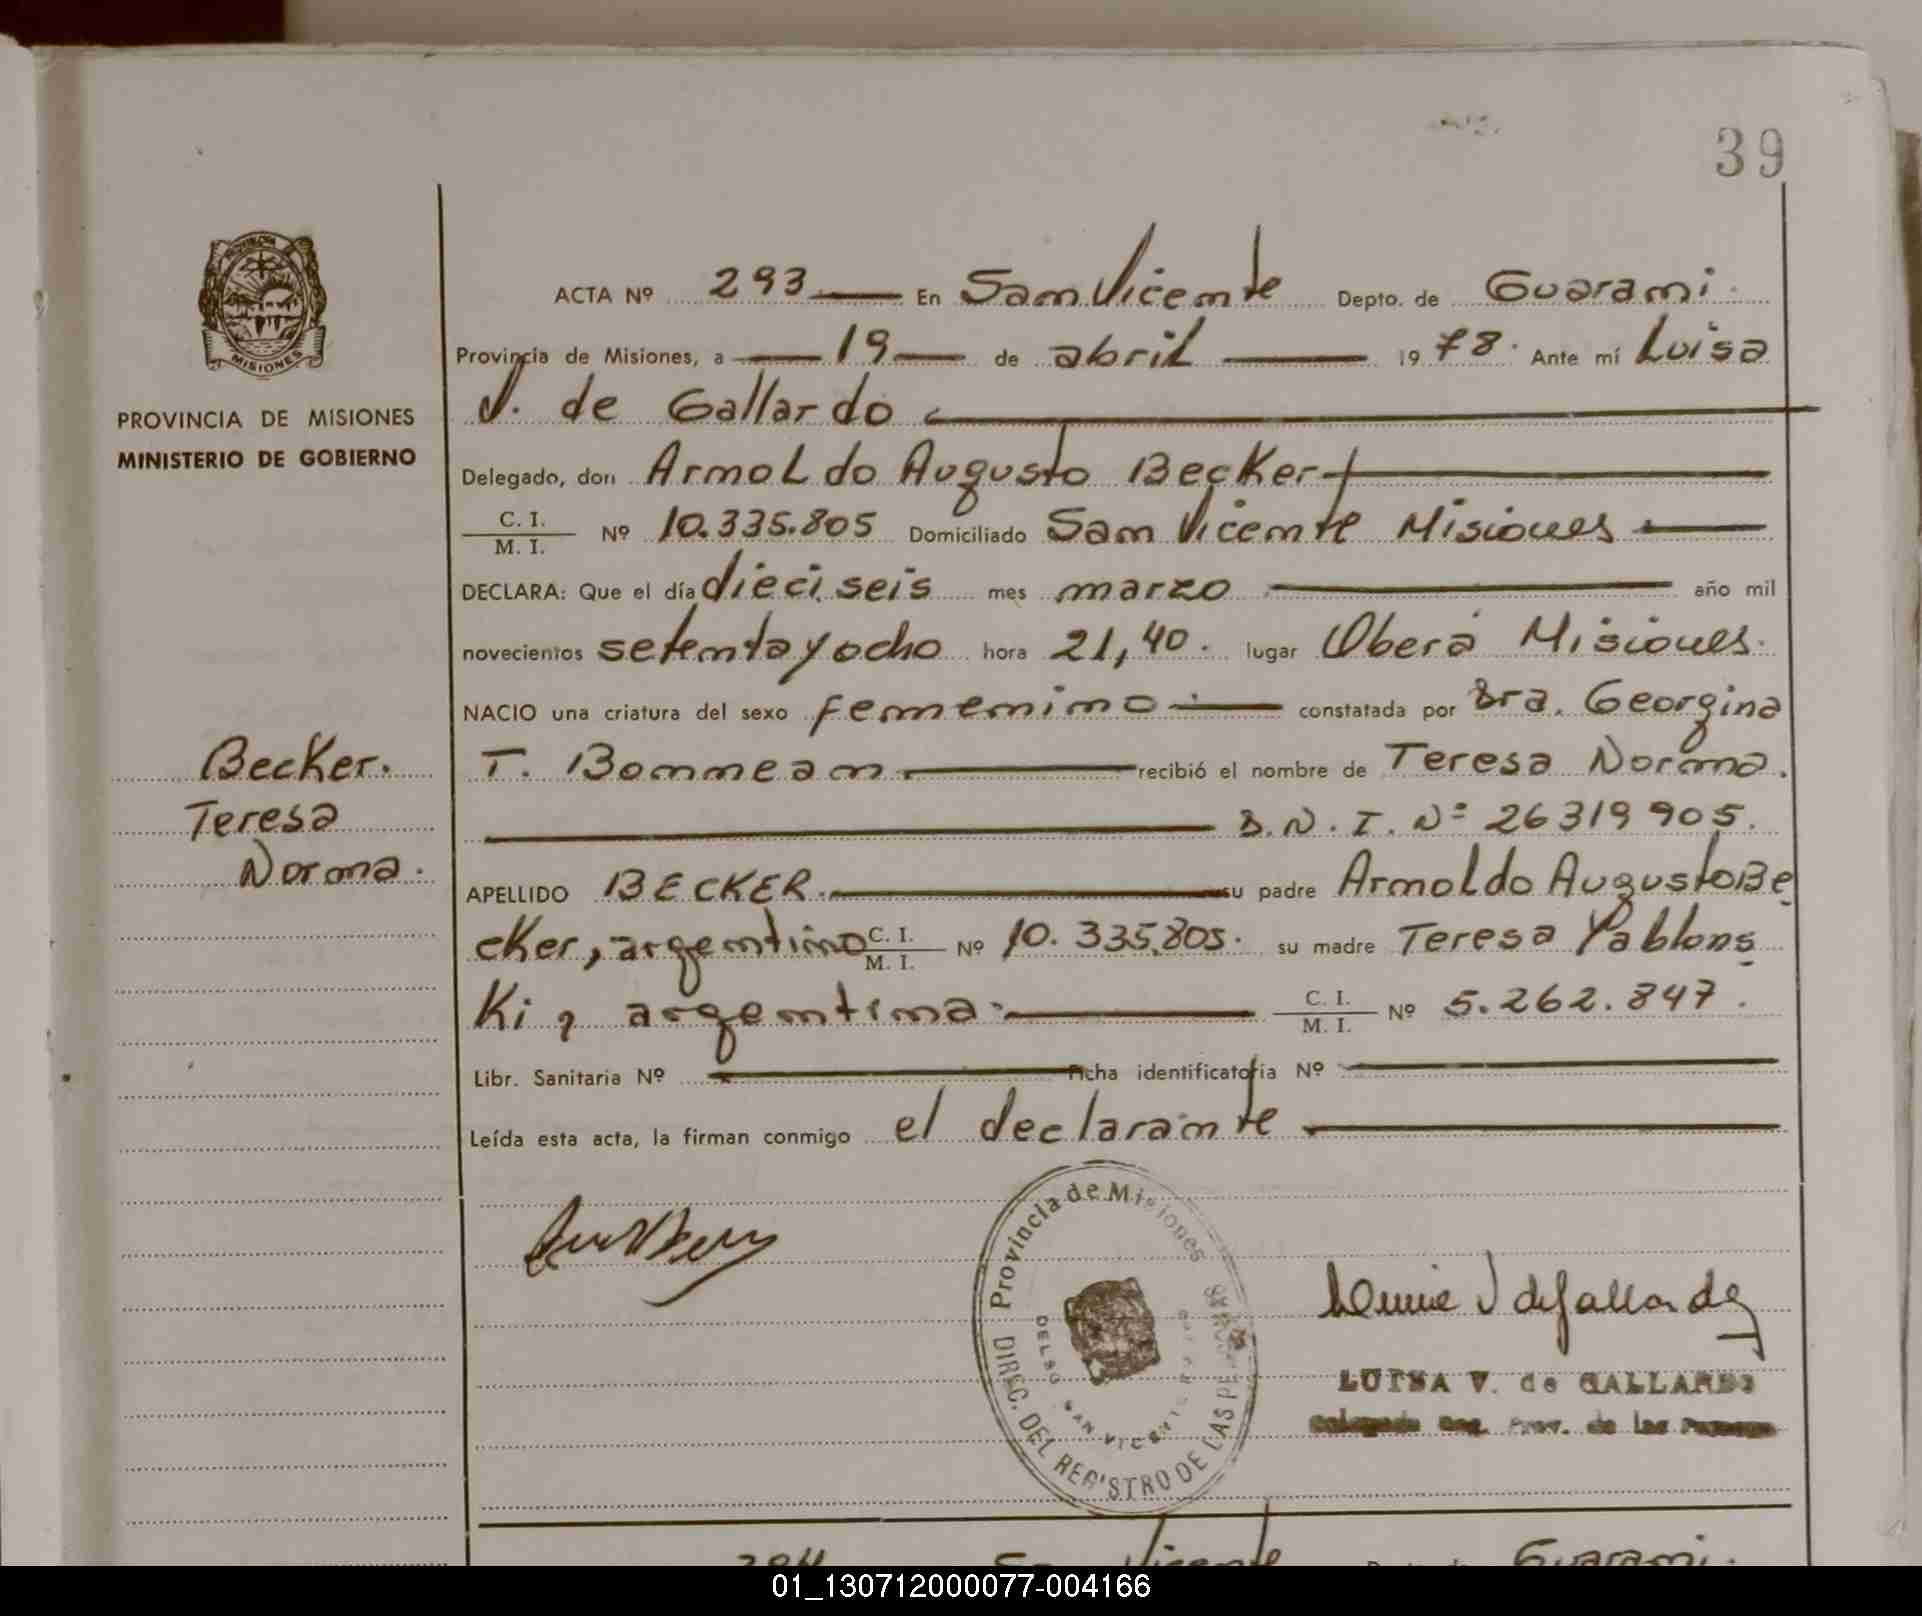 39
MISIONES
PROVINCIA DE MISIONES
MINISTERIO DE GOBIERNO
Becker.
Teresa
Norma.
ACTA Nº 293 En San Vicente Depto. de Guarani.
Provincia de Misiones, a 19 de abril 1978. Ante mí Luisa
V. de Gallardo
Delegado, don Arnoldo Augusto Becker
C. I.
M. I. Nº 10.335.805 Domiciliado San Vicente Misiones
DECLARA: Que el día dieciseis mes marzo año mil
novecientos setenta y ocho hora 21,40. lugar Oberá Misiones.
NACIO una criatura del sexo femenino constatada por Dra. Georgina
T. Bonnean recibió el nombre de Teresa Norma.
D.N.I. Nº 26319905.
APELLIDO BECKER. su padre Arnoldo Augusto Be
cker, argentino C. I.
M. I. Nº 10.335.805. su madre Teresa Yablons
Ki, argentina. C. I.
M. I. Nº 5.262.847.
Libr. Sanitaria Nº Ficha identificatoria Nº
Leída esta acta, la firman conmigo el declarante
Provincia de Misiones
DIREC. DEL REGISTRO DE LAS PE
SAN VICENTE
LUISA V. de GALLARDO
Delegado Reg. Prov. de las Personas
294 San Vicente Guarani.
01_130712000077-004166